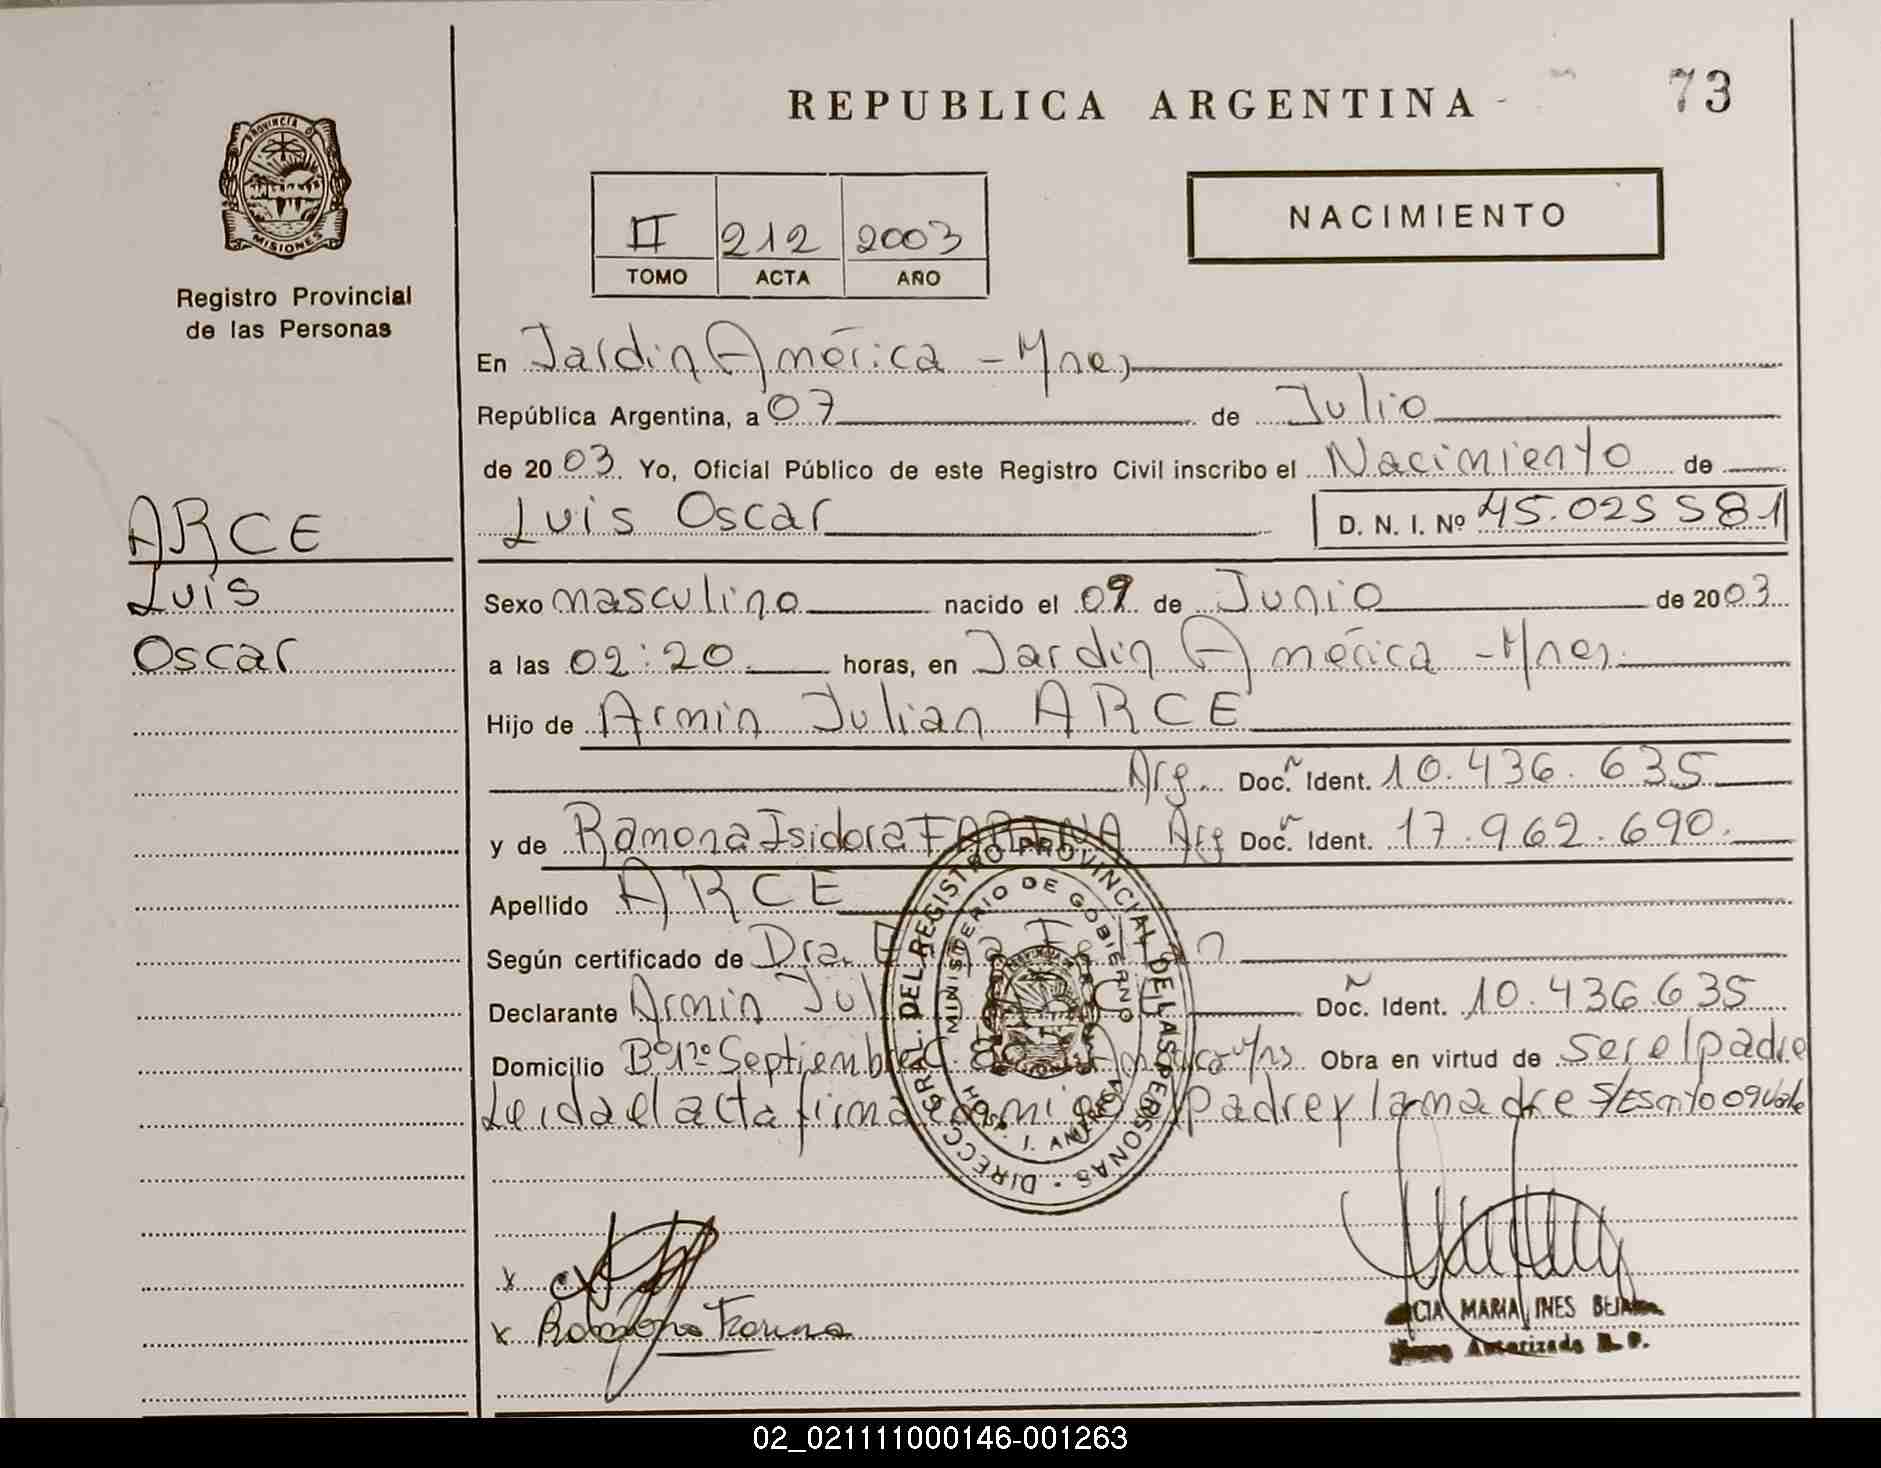 REPUBLICA ARGENTINA
73
PROVINCIA D
MISIONES
Registro Provincial
de las Personas
II 212 2003
TOMO ACTA AÑO
NACIMIENTO
En Jardin América - Mnes
República Argentina, a 07 de Julio
de 2003 Yo, Oficial Público de este Registro Civil inscribo el Nacimiento de
Luis Oscar D. N. I. Nº 45.025581
ARCE
Luis
Oscar
Sexo masculino nacido el 09 de Junio de 2003
a las 02:20 horas, en Jardin América - Mnes.
Hijo de Armin Julian ARCE
Arg. Doc. Ident. 10.436.635
y de Ramona Isidora FARINA Arg Doc. Ident. 17.962.690.
Apellido ARCE
Según certificado de Dra.
Declarante Armin Jul Doc. Ident. 10.436.635
Domicilio Bº 1º Septiembre Obra en virtud de ser el padre
Leida el acta firma conmigo el padre y la madre S/Escrito 09 Vale
DIRECC. GRAL. DEL REGISTRO PROVINCIAL DE LAS PERSONAS
MINISTERIO DE GOBIERNO
Ramona Farina
MARIA INES
Autorizada
02_021111000146-001263